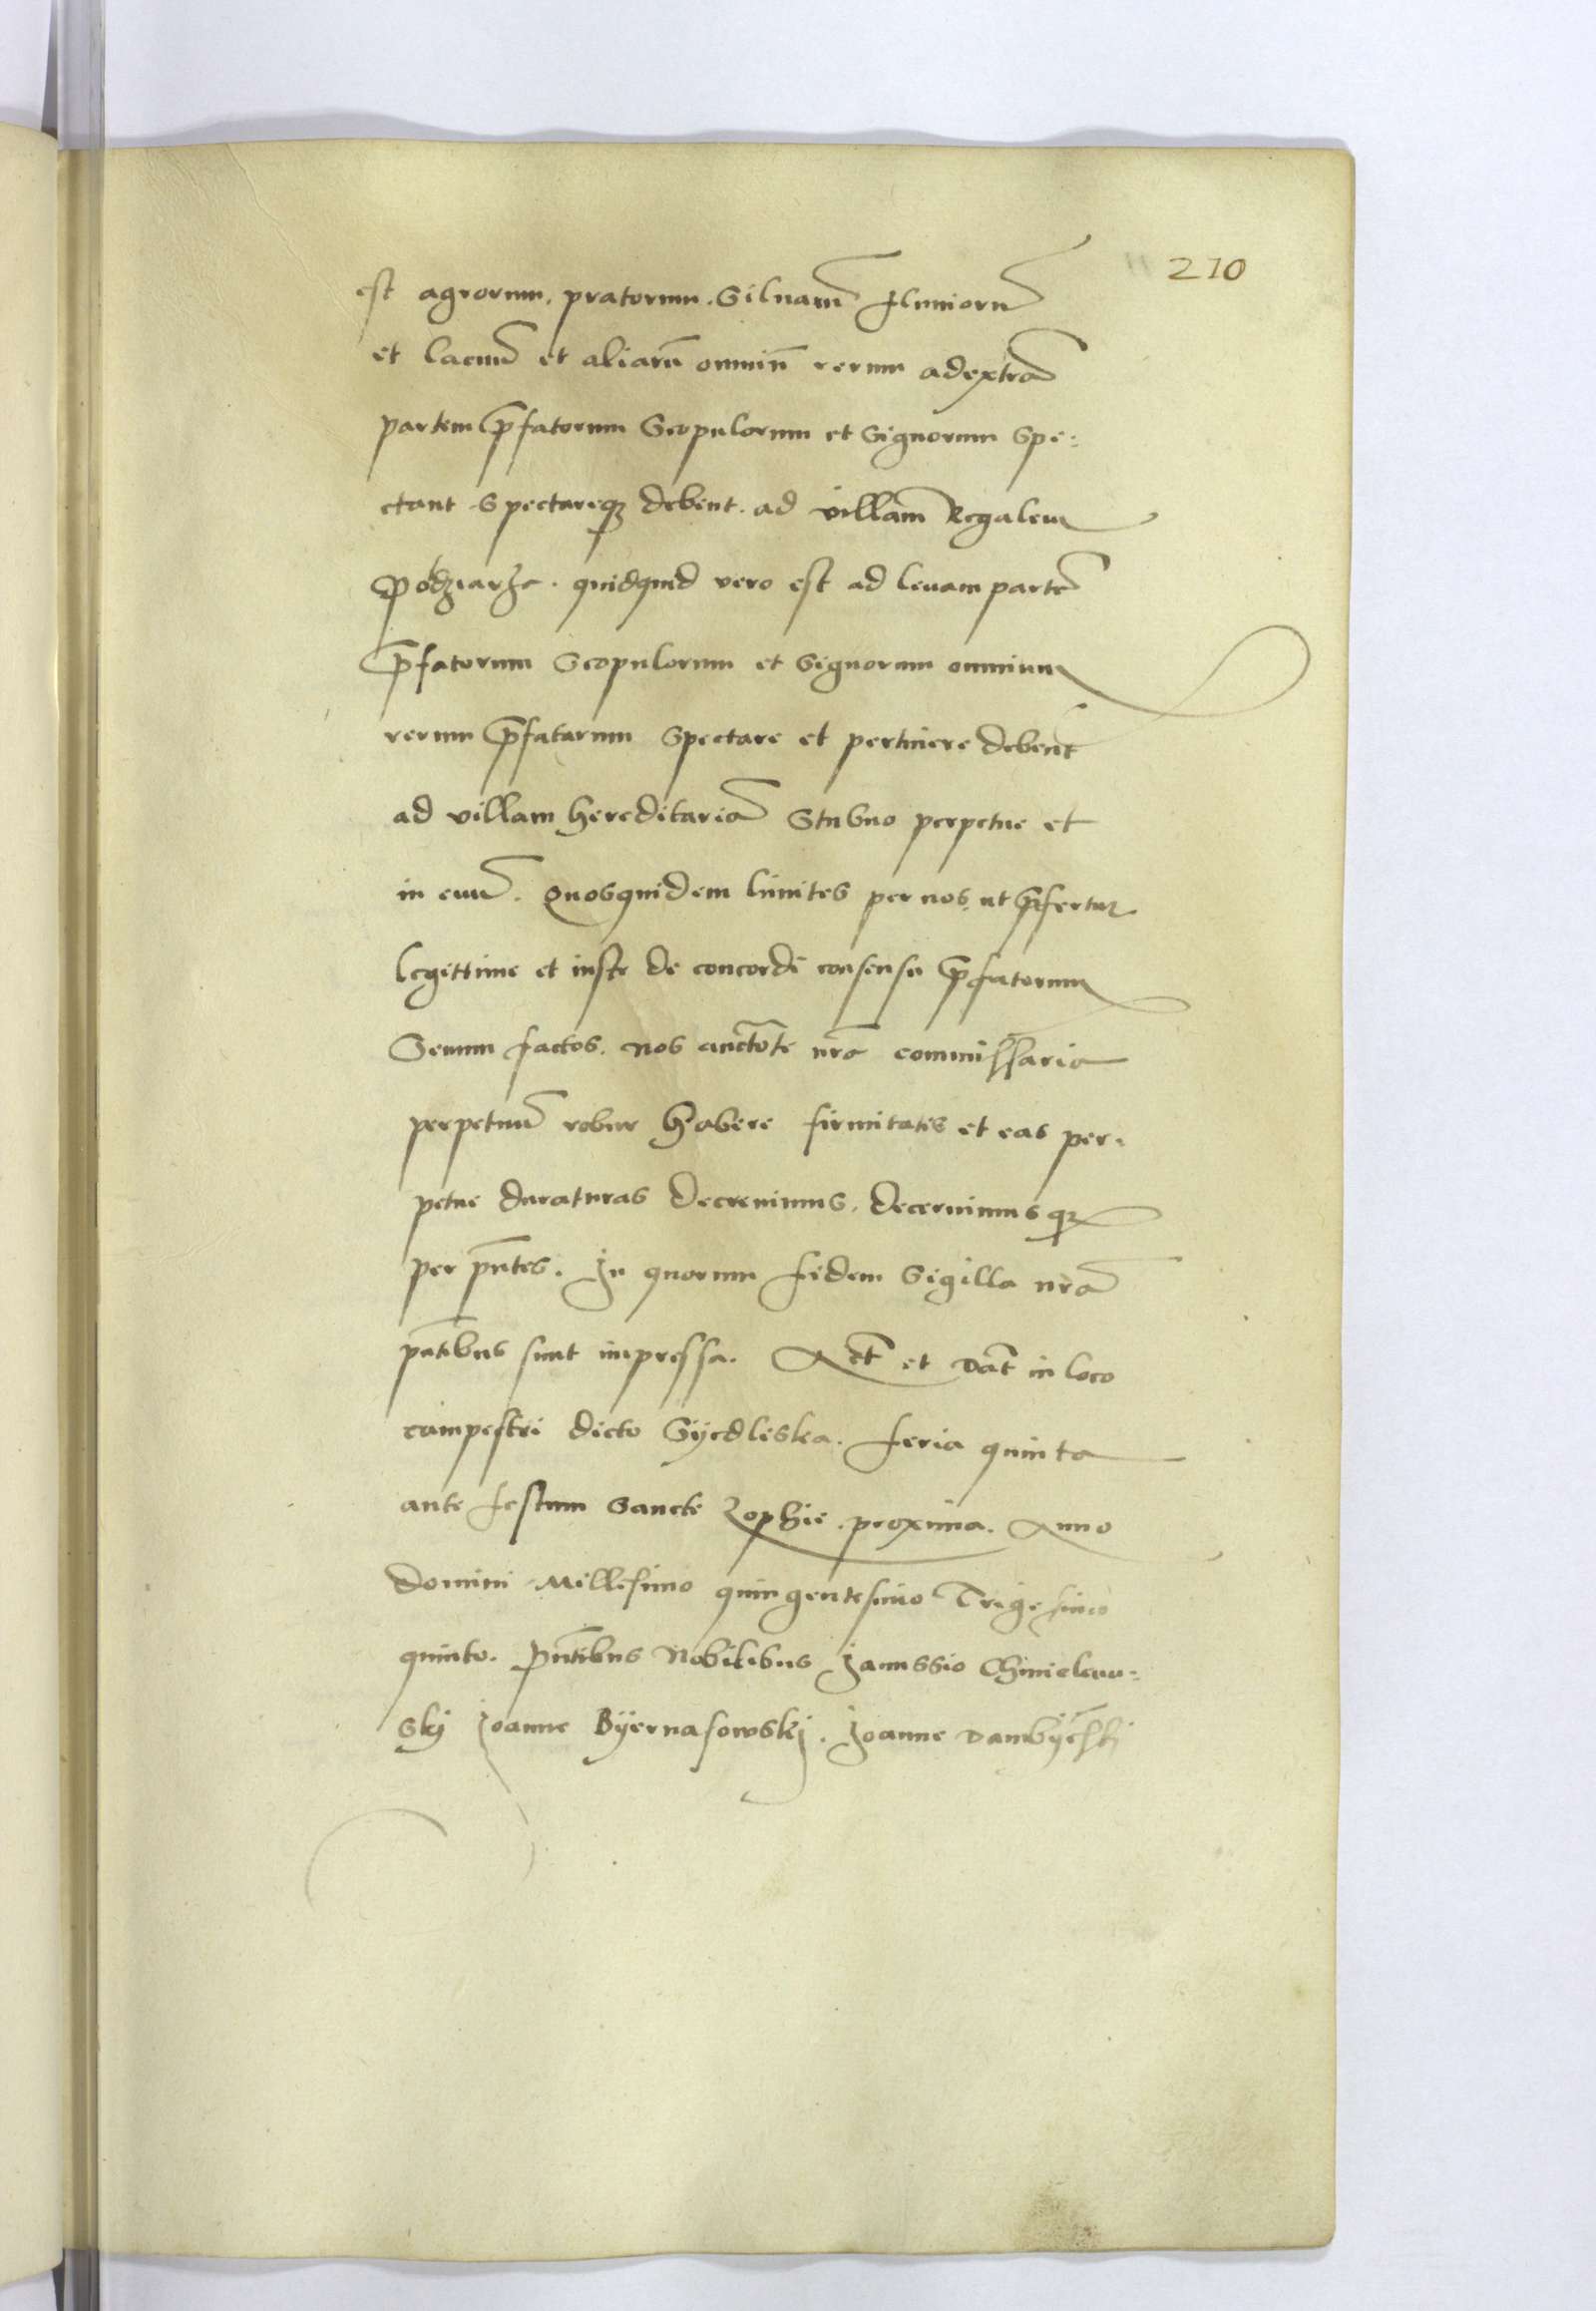 210
est agrorum, pratorum, Siluarū fluuiorū
et lacuū et aliarū omniū rerum ad extrā
partem p̄fatorum Scopulorum et Signorum Spe:
ctant Spectareq₃ debent. ad villam̄ Regalem
quidquid vero est ad leuam partē
p̄fatorum Scopulorum et Signorum omnium
rerum p̄fatarum Spectare et pertinere debent
ad villam hereditariā Stubno perpetue et
in euū. Quosquidem limites per nos, ut p̄fertur
legittime et iuste de concordi consensu p̄fatorum
factos. nos auctote nr̄a commissaria
perpetuū robur habere firmitatis et eas per:
petue duraturas decreuimus, decernimusq₃
per pn̄tes. In quorum fidem Sigilla nr̄a
pn̄tibus sunt impressa. Act̄ et Dat̄ in loco
campestri dicto Syedliska. feria quinta
ante festum Sancte Zophie proxima. Anno
Domini Millesimo quingentesimo Trigesimo
quinto. pn̄tibus Nobilibus Janussio Chmielow:
skj Joanne Byernasowskj. Joanne Dambyeńskj